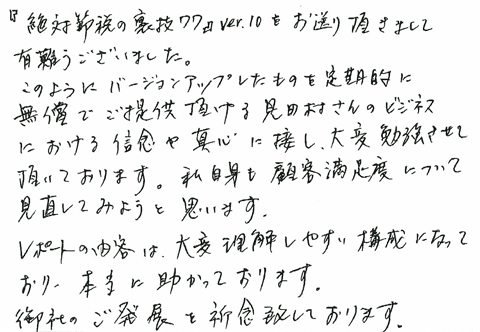 『絶対節税の裏技77』ver.10をお送り頂きまして
有難うございました。
このようにバージョンアップしたものを定期的に
無償でご提供頂ける見田村さんのビジネス
における信念や真心に接し、大変勉強させて
頂いております。私自身も顧客満足度について
見直してみようと思います。
レポートの内容は、大変理解しやすい構成になって
おり、本当に助かっております。
御社のご発展を祈念致しております。